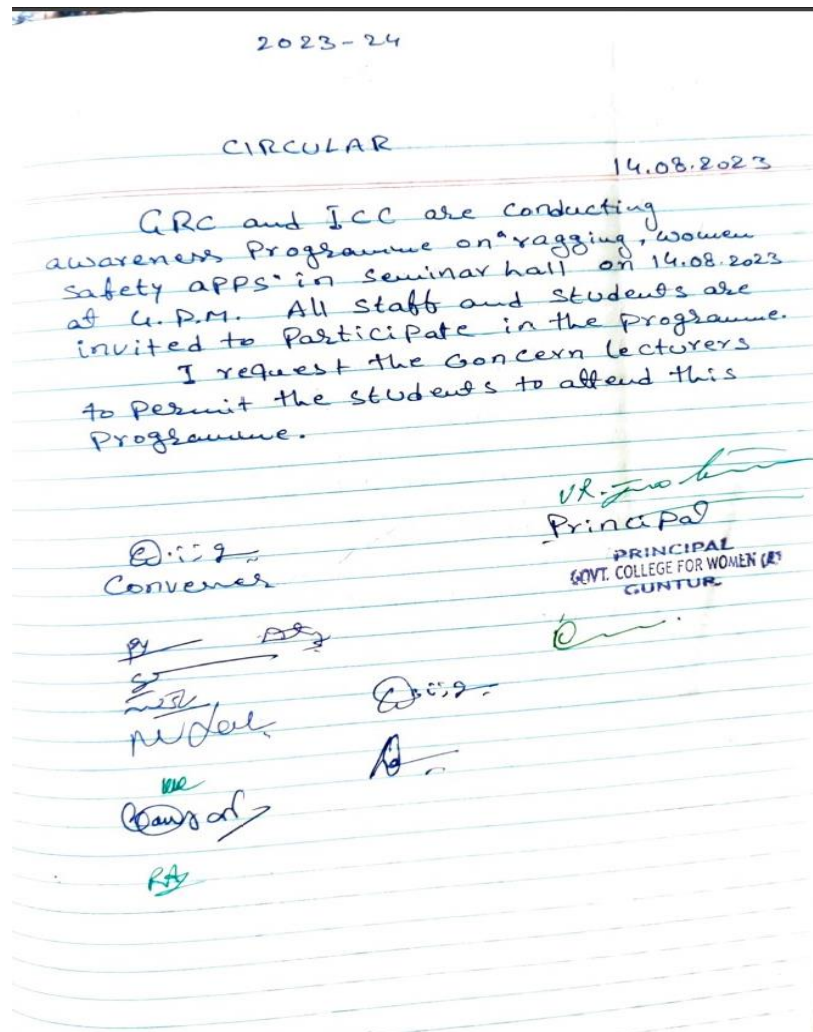 2023-24
CIRCULAR
14.08.2023
GRC and ICC are conducting
awareness Programme on "ragging, women
safety apps" in seminar hall on 14.08.2023
at 4. P.M. All staff and students are
invited to Participate in the programme.
I request the concern lecturers
to permit the students to attend this
Programme.
Principal
PRINCIPAL
GOVT. COLLEGE FOR WOMEN (A)
GUNTUR
Convener